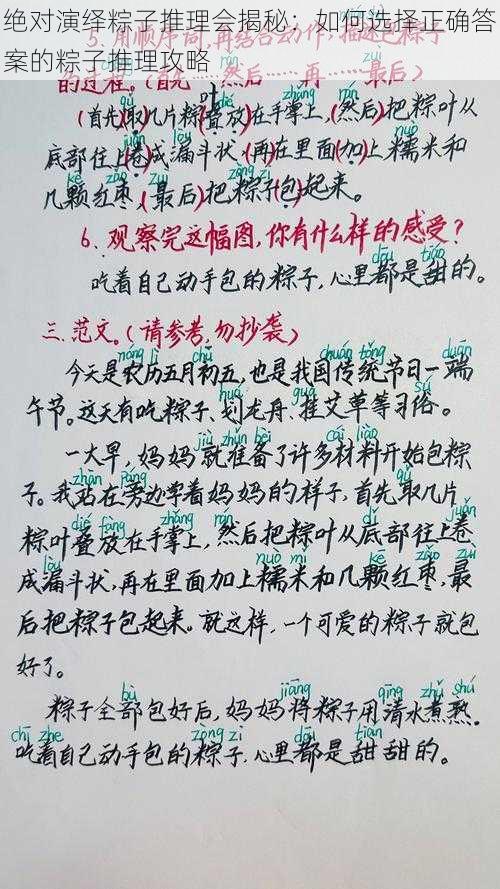 绝对演绎粽子推理会揭秘：如何选择正确答
案的粽子推理攻略
5.用顺序词,再结合动作,描述包粽子
的过程。(首先……然后……再……最后)
(首先)取几片粽叶叠放在手掌上,(然后)把粽叶从
底部往上卷成漏斗状,(再)在里面加上糯米和
几颗红枣,(最后)把粽子包起来。
6.观察完这幅图,你有什么样的感受?
吃着自己动手包的粽子,心里都是甜的。
三.范文。(请参考,勿抄袭)
今天是农历五月初五,也是我国传统节日一端
午节。这天有吃粽子、划龙舟、挂艾草等习俗。
一大早,妈妈就准备了许多材料开始包粽
子。我站在旁边学着妈妈的样子,首先取几片
粽叶叠放在手掌上,然后把粽叶从底部往上卷
成漏斗状,再在里面加上糯米和几颗红枣,最
后把粽子包起来。就这样,一个可爱的粽子就包
好了。
粽子全部包好后,妈妈将粽子用清水煮熟。
吃着自己动手包的粽子,心里都是甜甜的。